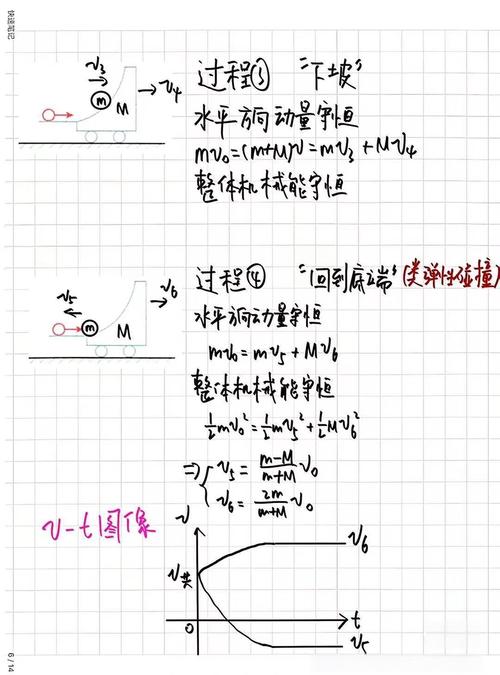 快速笔记
v₃
m
M
→v₄
过程③ "下坡"
水平方向动量守恒
mv₀=(m+M)v=mv₃+Mv₄
整体机械能守恒
v₅
v₆
m
M
过程④ "回到底端"(类弹性碰撞)
水平方向动量守恒
mv₀=mv₅+Mv₆
整体机械能守恒
½mv₀²=½mv₅²+½Mv₆²
⇒{v₅=\frac{m-M}{m+M}v₀
v₆=\frac{2m}{m+M}v₀
v-t图像
v
v₆
v共
0
t
v₅
6 / 14